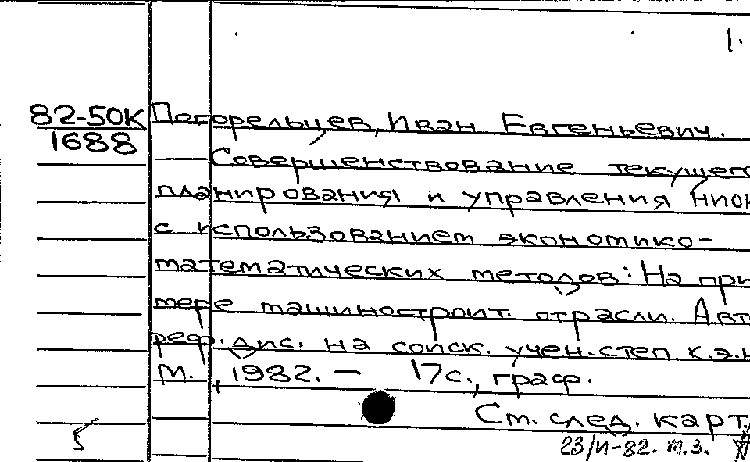 1.
82-50К Погорельцев, Иван Евгеньевич.
1688
Совершенствование текущего
планирования и управления НИОК
с использованием экономико-
математических методов: На при
мере машиностроит. отрасли. Авт
реф. дис. на соиск. учен. степ к.э.н
М., 1982. - 17 с., граф.
См. след. карт.
5
23/VI-82. т.з.